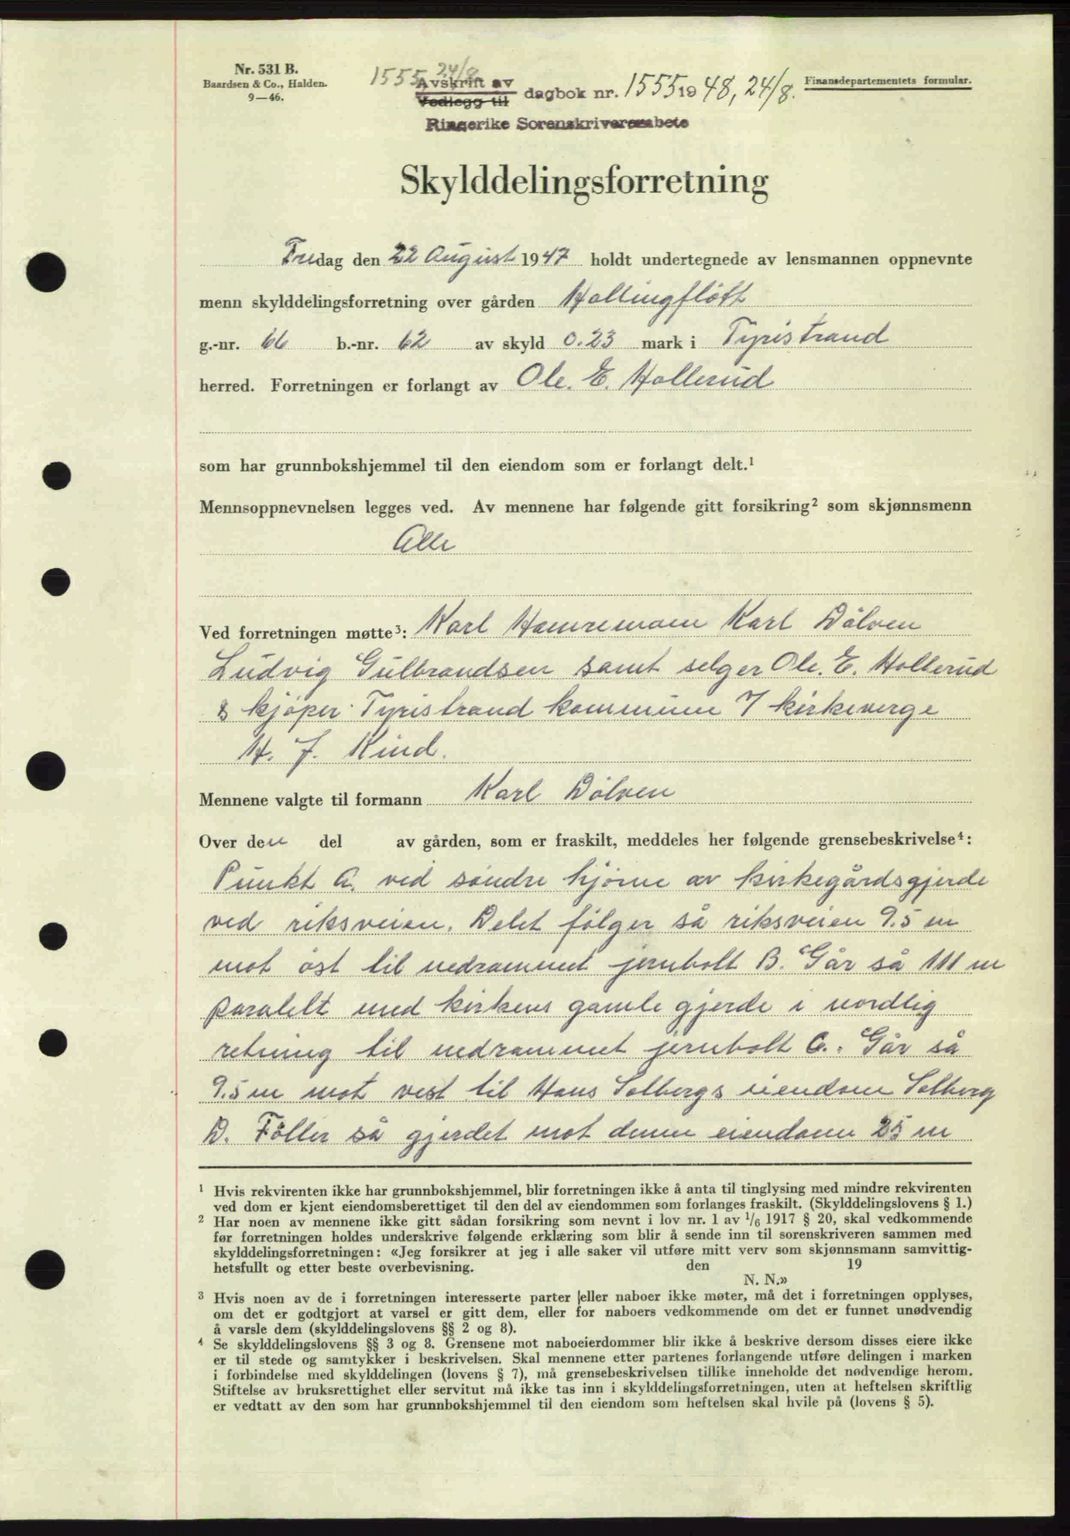 Nr. 531 B.
Baardsen & Co., Halden.
9—46.
1555 24/8
Avskrift av
Vedlegg til
dagbok nr. 1555 1948, 24/8.
Ringerike Sorenskriverembete
Finansdepartementets formular.
Skylddelingsforretning
Fredag den 22 August 1947 holdt undertegnede av lensmannen oppnevnte
menn skylddelingsforretning over gården Hollingflått
g.-nr. 66 b.-nr. 62 av skyld 0.23 mark i Tyristrand
herred. Forretningen er forlangt av Ole. E. Hollerud
som har grunnbokshjemmel til den eiendom som er forlangt delt.¹
Mennsoppnevnelsen legges ved. Av mennene har følgende gitt forsikring² som skjønnsmenn
Alle
Ved forretningen møtte³: Karl Karl Dölven
Ludvig Gulbrandsen samt selger Ole. E. Hollerud
& kjöper Tyristrand kommune v/ kirkeverge
H. J. Kind.
Mennene valgte til formann Karl Dölven
Over den del av gården, som er fraskilt, meddeles her følgende grensebeskrivelse⁴:
Punkt A. ved söndre hjörne av kirkegårdsgjerde
ved riksveien. Delet fölger så riksveien 9.5 m
mot öst til nedrammet jernbolt B. Går så 111 m
paralelt med kirkens gamle gjerde i nordlig
retning til nedrammet jernbolt C. Går så
9.5 m mot vest til Hans Solbergs eiendom Solberg
D. Föller så gjerdet mot denne eiendom 25 m
¹ Hvis rekvirenten ikke har grunnbokshjemmel, blir forretningen ikke å anta til tinglysing med mindre rekvirenten
ved dom er kjent eiendomsberettiget til den del av eiendommen som forlanges fraskilt. (Skylddelingslovens § 1.)
² Har noen av mennene ikke gitt sådan forsikring som nevnt i lov nr. 1 av 1/6 1917 § 20, skal vedkommende
før forretningen holdes underskrive følgende erklæring som blir å sende inn til sorenskriveren sammen med
skylddelingsforretningen: «Jeg forsikrer at jeg i alle saker vil utføre mitt verv som skjønnsmann samvittig-
hetsfullt og etter beste overbevisning. den 19
N. N.»
³ Hvis noen av de i forretningen interesserte parter eller naboer ikke møter, må det i forretningen opplyses,
om det er godtgjort at varsel er gitt dem, eller for naboers vedkommende om det er funnet unødvendig
å varsle dem (skylddelingslovens §§ 2 og 8).
⁴ Se skylddelingslovens §§ 3 og 8. Grensene mot naboeierdommer blir ikke å beskrive dersom disses eiere ikke
er til stede og samtykker i beskrivelsen. Skal mennene etter partenes forlangende utføre delingen i marken
i forbindelse med skylddelingen (lovens § 7), må grensebeskrivelsen tillike inneholde det nødvendige herom.
Stiftelse av bruksrettighet eller servitut må ikke tas inn i skylddelingsforretningen, uten at heftelsen skriftlig
er vedtatt av den som har grunnbokshjemmel til den eiendom som heftelsen skal hvile på (lovens § 5).